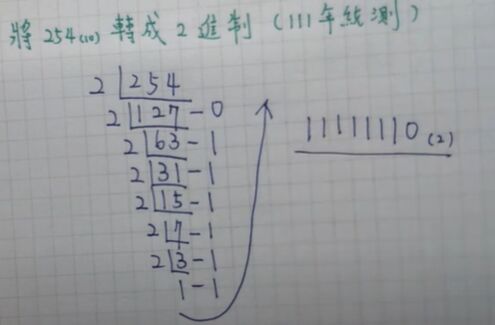 將 254(10) 轉成 2 進制 (111年統測)
2 254
2 127 - 0
2 63 - 1
2 31 - 1
2 15 - 1
2 7 - 1
2 3 - 1
1 - 1
11111110 (2)